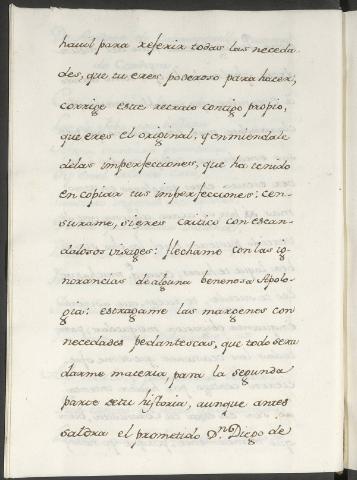 havil para referir todas las neceda-
des, que tu eres poderoso para hacer,
corrige este retrato contigo propio,
que eres el original: y enmiendale
delas imperfecciones, que ha tenido
en copiar tus imperfecciones: cen-
surame, si eres critico con escan-
dalosos visages: flechame con las ig-
norancias de alguna benenosa Apolo-
gia: estragame las margenes con
necedades pedantescas, que todo sera
darme materia, para la segunda
parte de tu historia, aunque antes
saldra el prometido D.n Diego de